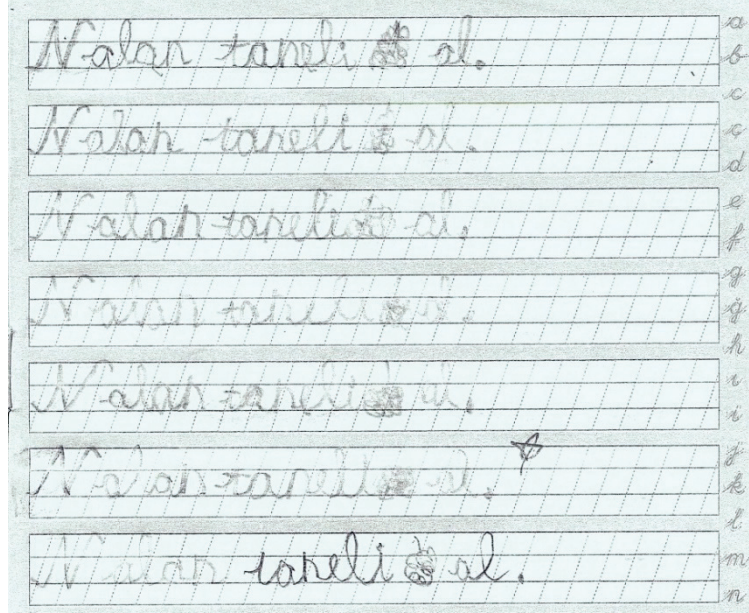 Nalan taneli al.
Nalan taneli al.
Nalan taneli al.
Nalan taneli al.
Nalan taneli al.
Nalan taneli al.
Nalan taneli al.
a
b
c
ç
d
e
f
g
ğ
h
ı
i
j
k
l
m
n